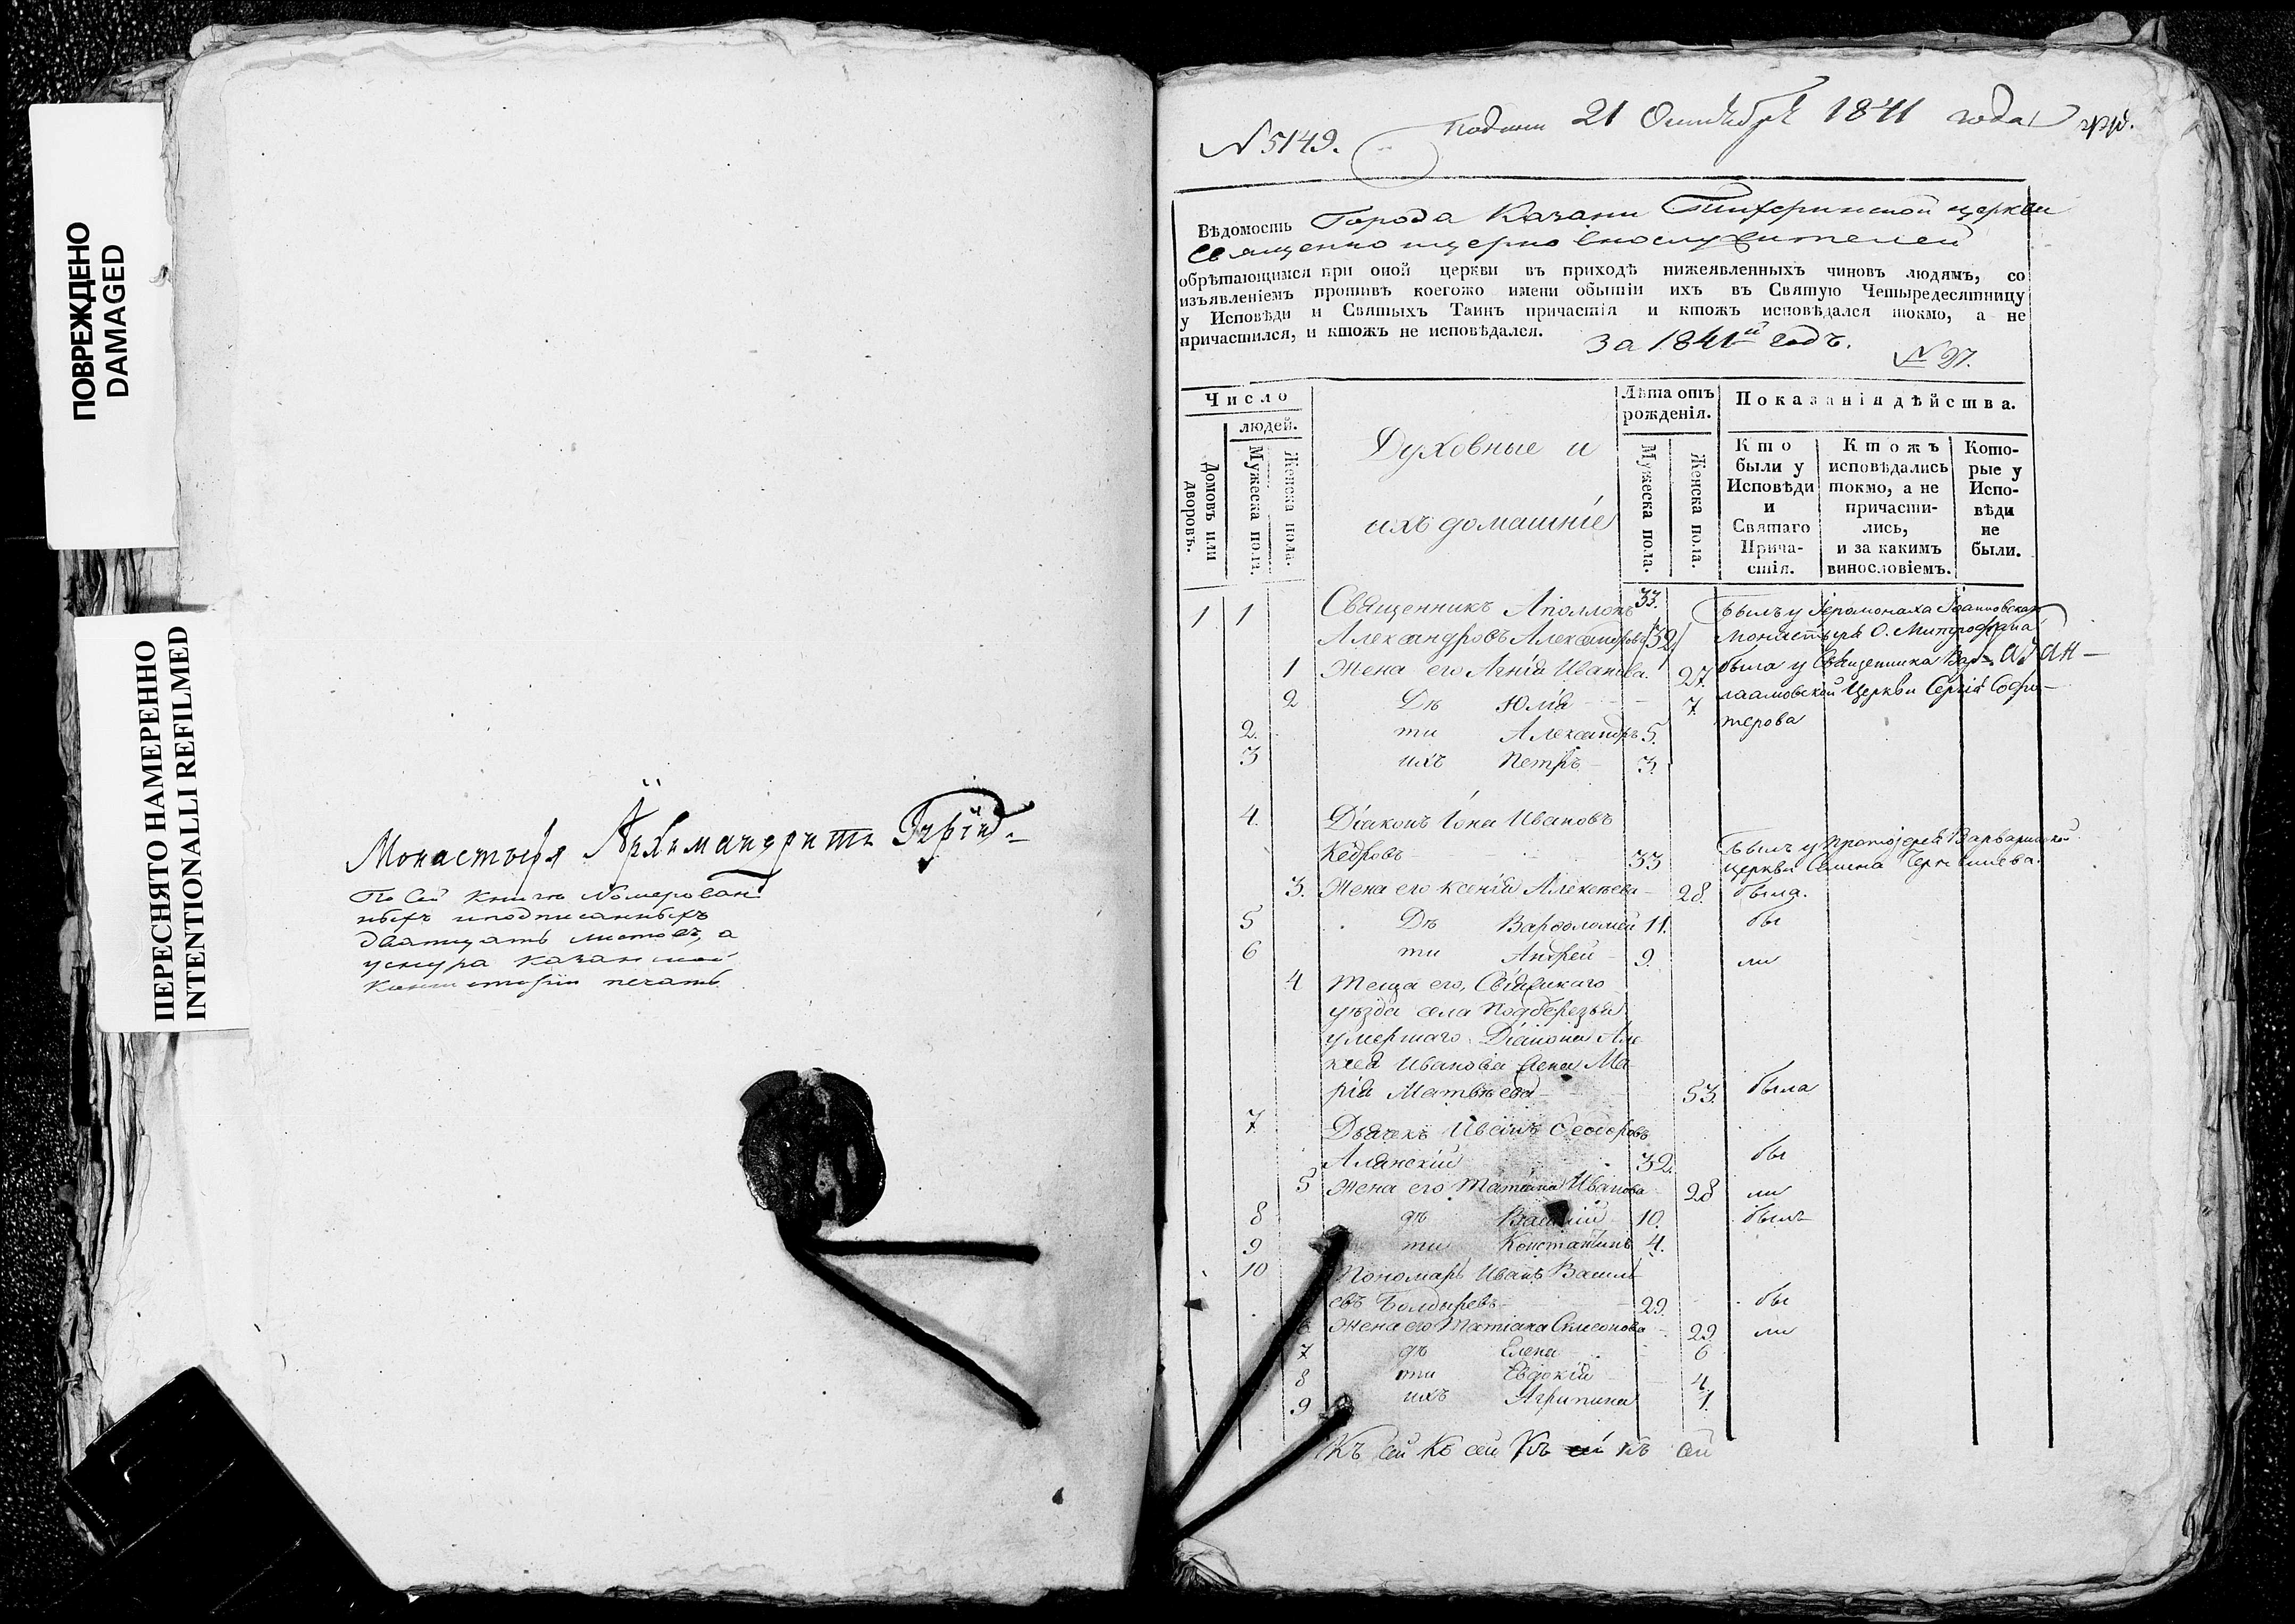 ПОВРЕЖДЕНО
DAMAGED
ПЕРЕСНЯТО НАМЕРЕННО
INTENTIONALLI REFILMED
Монастыря Архимандритъ Гурій
По сей книге Номерован
ныхъ и подписанныхъ
дватцать листовъ, а
у снура казанской
Консисторіи печать
N 5149.
Подани 21 Октября 1841 года
Вѣдомость Города Казани Тихвинской церкви
священно церковнослужителей
обрѣтающимся при оной церкви въ приходѣ нижеявленныхъ чиновъ людямъ, со
изъявленіемъ противъ коегожо имени обытіи ихъ въ Святую Четыредесятницу
у Исповѣди и Святыхъ Таинъ причастія и ктожъ исповѣдался токмо, а не
причастился, и ктожъ не исповѣдался.
За 1841й годъ.
№ 97.
Число
людей.
Домовъ или дворовъ.
Мужеска пола.
Женска пола.
Духовные и
ихъ домашніе
Лѣта отъ
рожденія.
Мужеска пола.
Женска пола.
Показанія дѣйства.
Кто
были у
Исповѣди
и
Святаго
Прича-
стія.
Ктожъ
исповѣдались
токмо, а не
причасти-
лись,
и за какимъ
винословіемъ.
Кото-
рые у
Испо-
вѣди
не
были.
1 1 Священникъ Аполлонъ 33. Былъ у Іеромонаха Іоанновскаго
Александровъ Александровъ 32 Монастыря О. Митрофана
1 Жена его Агнія Иванова. 27. была у Священника Вар-
2 Дѣ Юлія 7. лаамовской Церкви Сергія Софо-
2. ти Александръ 5. терова
3 ихъ Петръ 3.
4. Діаконъ Іона Ивановъ
Кедровъ 33 Былъ у Протоіерея Варваринской
церкви Симеона
3. Жена его Ксенія Алексѣева 28. была.
5 Дѣ Варѳоломей 11. бы
6 ти Андрей 9. ли
4 Теща его, Свіяжскаго
уѣзда села Подберезья
умершаго Діакона Але
ксѣя Иванова жена Ма
рія Матвѣева 53. была
7. Дьячекъ Иванъ Ѳеодоровъ
Аланскій 32. бы
5 Жена его Татіана Иванова 28 ли
8 дѣ Василій 10. былъ
9 ти Константинъ 4.
10 Пономарь Иванъ Василь
евъ Болдыревъ 29. бы
6. Жена его Татіана Симеонова 29 ли
7 дѣ Елена 6
8 ти Евдокія 4
9 ихъ Агрипина 1.
Къ сей Къ сей Къ сей къ сей